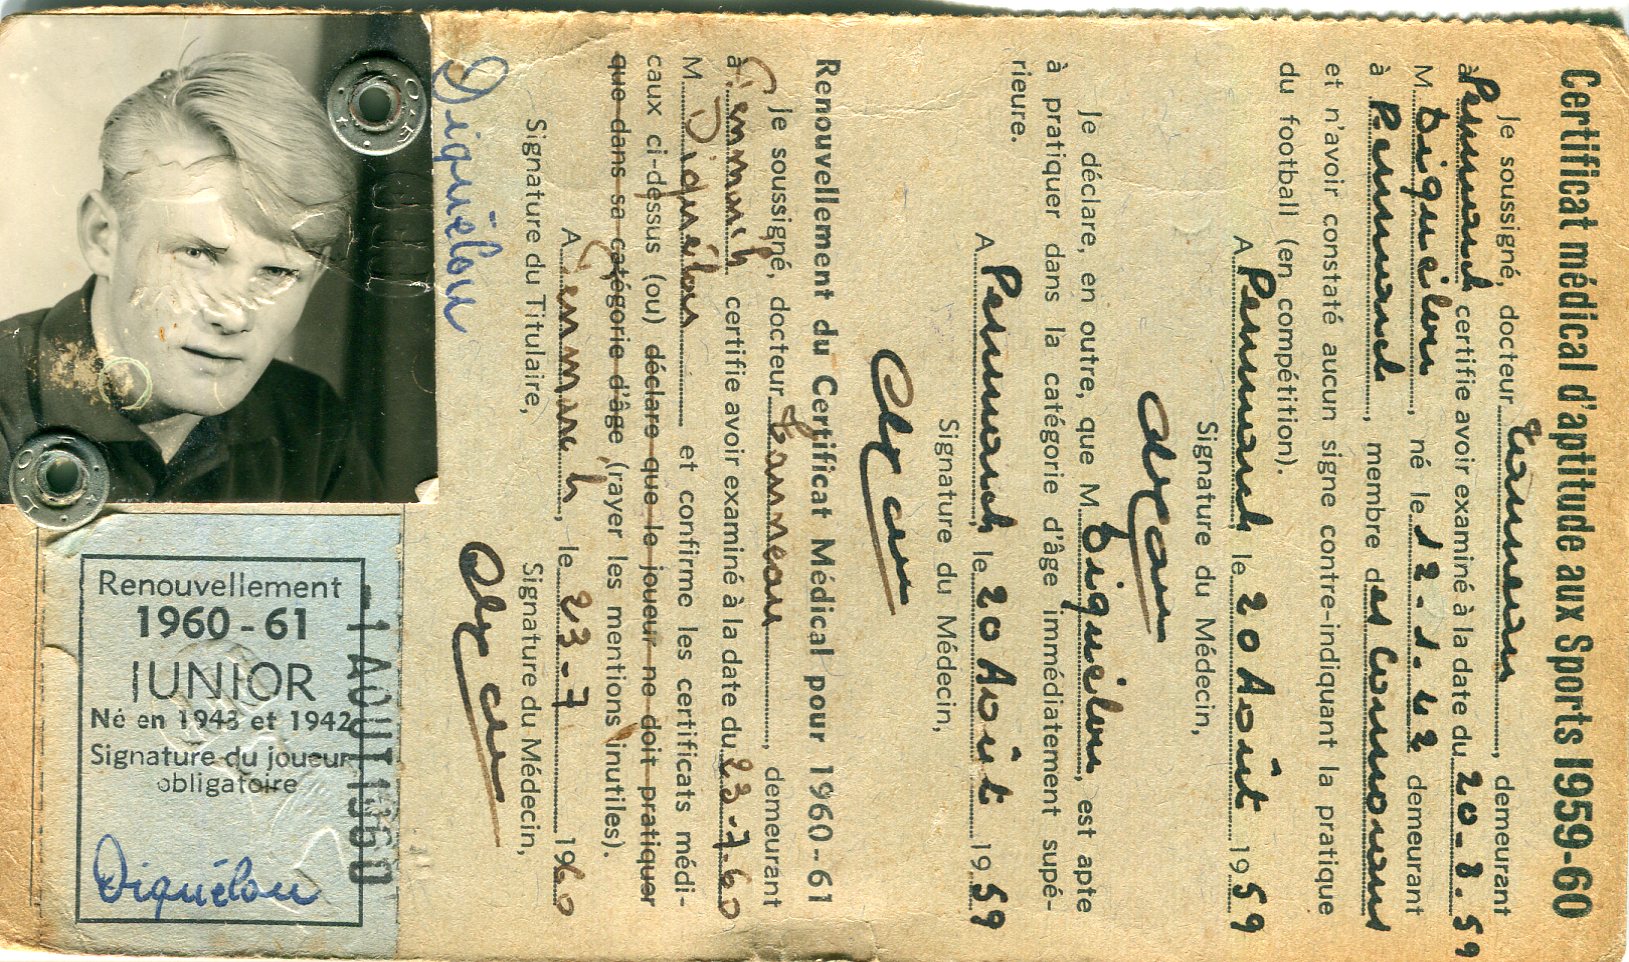 Certificat médical d'aptitude aux Sports 1959-60
Je soussigné, docteur Tanneau, demeurant
à Penmarch certifie avoir examiné à la date du 20-8.59
M. Diquélou, né le 12-1.42 demeurant
à Penmarch, membre des Cormorans
et n'avoir constaté aucun signe contre-indiquant la pratique
du football (en compétition).
A Penmarch le 20 Août 1959
Signature du Médecin,
Je déclare, en outre, que M. Diquélou, est apte
à pratiquer dans la catégorie d'âge immédiatement supé-
rieure.
A Penmarch, le 20 Août 1959
Signature du Médecin,
Renouvellement du Certificat Médical pour 1960-61
Je soussigné, docteur Tanneau, demeurant
à Penmarch certifie avoir examiné à la date du 23-7.60
M. Diquélou et confirme les certificats médi-
caux ci-dessus (ou) déclare que le joueur ne doit pratiquer
que dans sa catégorie d'âge (rayer les mentions inutiles).
A Penmarch, le 23-7 1960
Signature du Titulaire,
Signature du Médecin,
Diquélou
Renouvellement
1960-61
JUNIOR
Né en 1943 et 1942
Signature du joueur
obligatoire
Diquélou
-1 AOUT 1960